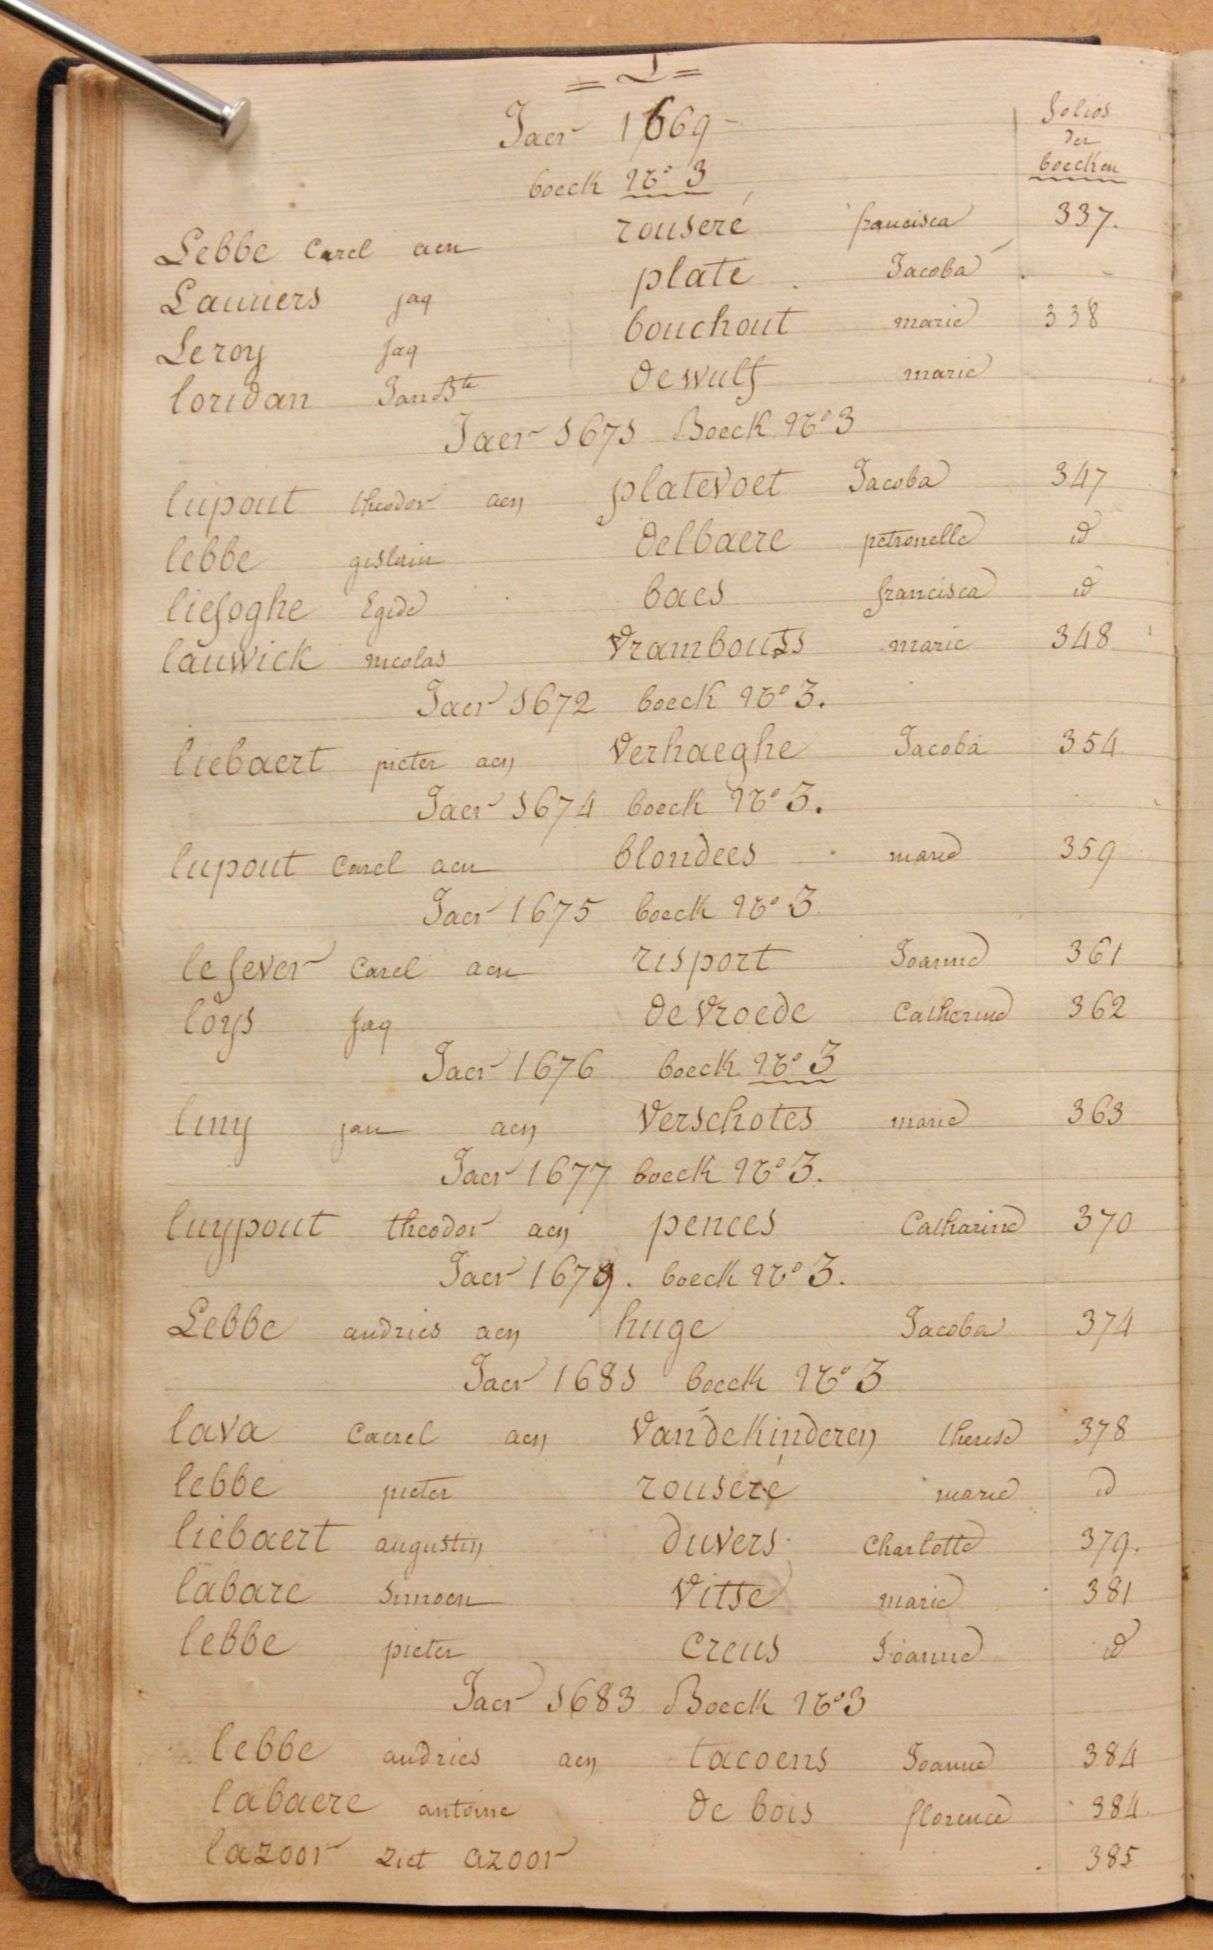 = L =
Jaer 1669 - folios
boeck No 3 der boecken
Lebbe Carel aen rouseré francisca 337.
Lauwers jaq plate Jacoba -
Leroy jaq bouchout marie 338
loridan Jan Bte de wulf marie
Jaer 1671 Boeck No 3
lupout theodor aen platevoet Jacoba 347
lebbe gislain delbaere petronelle id
liefoghe Egide baes francisca id
lauwick nicolas Vrambouts marie 348
Jaer 1672 boeck No 3.
liebaert pieter aen Verhaeghe Jacoba 354
Jaer 1674 boeck No 3.
lupout Carel aen blondees marie 359
Jaer 1675 boeck No 3
le fever Carel aen resport Joanne 361
loys jaq de Vroede Catherine 362
Jaer 1676 boeck No 3
liny jan aen Verschotes marie 363
Jaer 1677 boeck No 3.
luypout theodor aen pences Catharine 370
Jaer 1679. boeck No 3.
Lebbe andries aen huge Jacoba 374
Jaer 1681 boeck No 3
lava Caerel aen Van de Kinderen therese 378
lebbe pieter rouseré marie id
liebaert augustin duvers Charlotte 379.
labare Simoen Vitse marie 381
lebbe pieter creus Joanne id
Jaer 1683 Boeck No 3
lebbe andries aen tacoens Joanne 384
labaere antoine de bois florence 384
lazoor ziet azoor 385